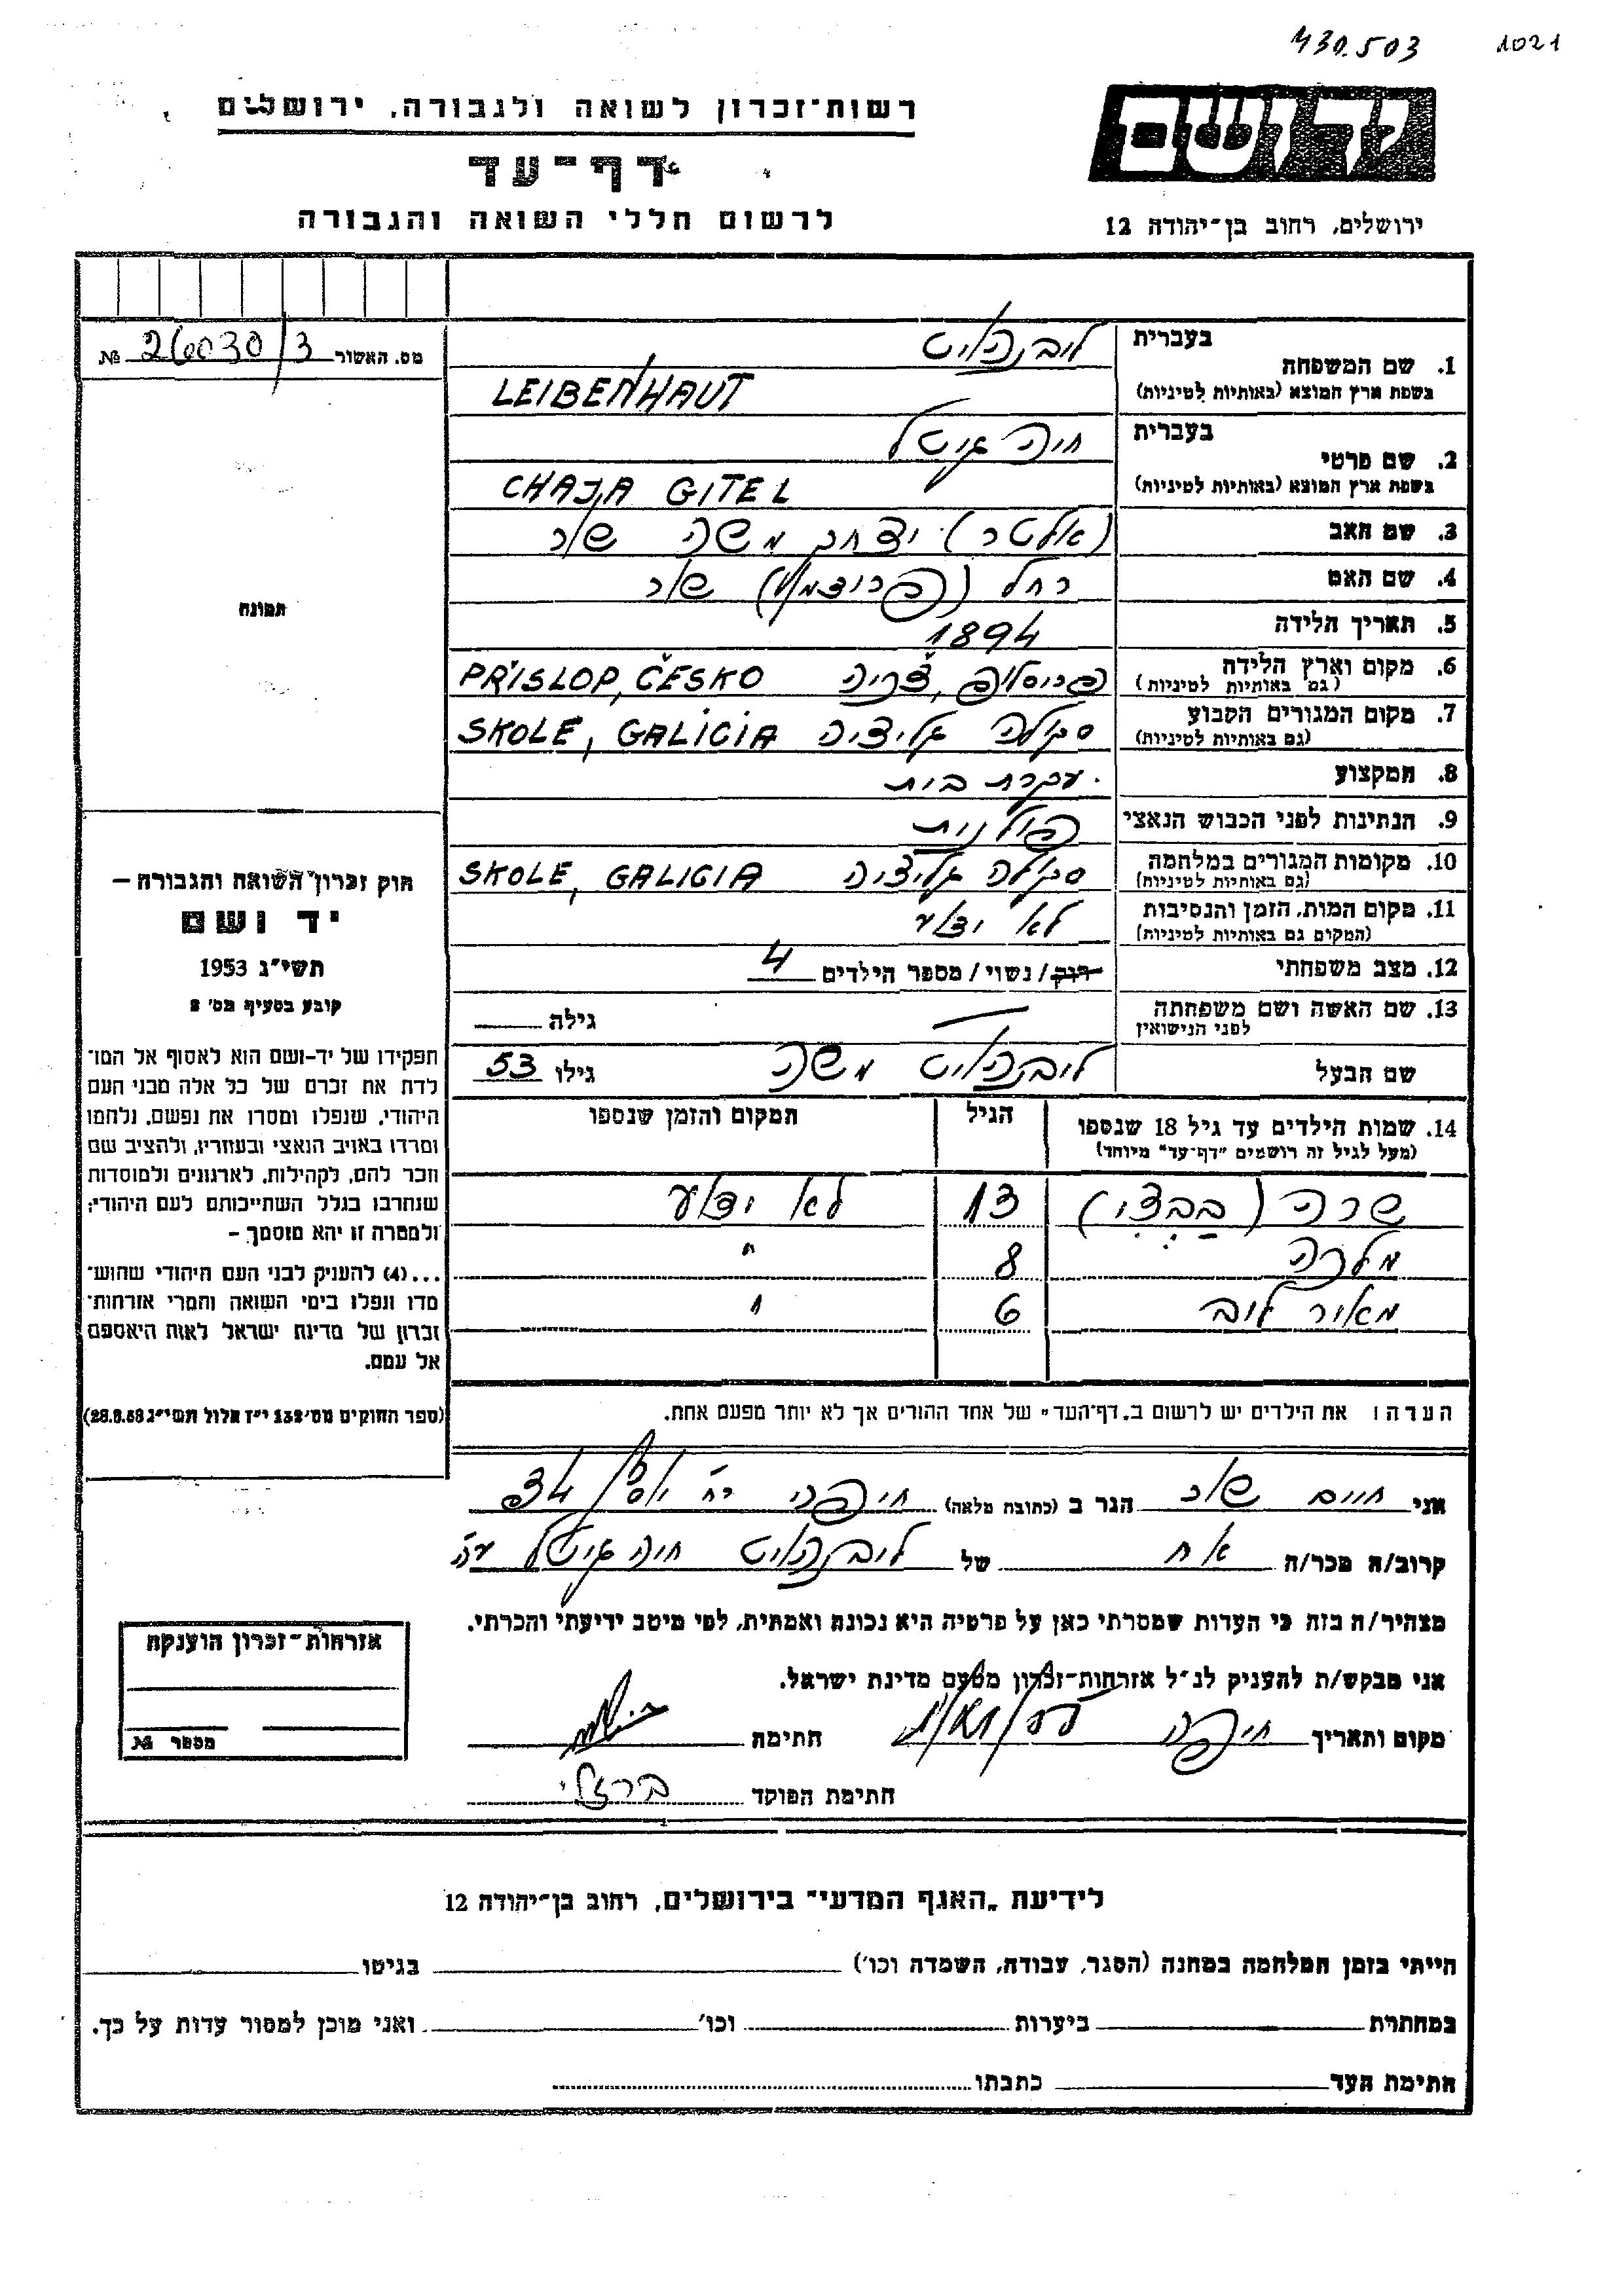 430.503 1021
רשות־זכרון לשואה ולגבורה, ירושלים
יד ושם
דף־עד
לרשום חללי השואה והגבורה
ירושלים, רחוב בן־יהודה 12
מס. האשור 26030/3 №
1. שם המשפחה
בעברית ליבנהויט
בשפת ארץ המוצא (באותיות לטיניות) LEIBENHAUT
2. שם פרטי
בעברית חיה גיטל
בשפת ארץ המוצא (באותיות לטיניות) CHAJA GITEL
3. שם האב (אלטר) יצחק משה
4. שם האם רחל
5. תאריך הלידה 1894
6. מקום וארץ הלידה
(גם באותיות לטיניות) פריסלופ, צ'כיה PŘÍSLOP, ČESKO
7. מקום המגורים הקבוע
(גם באותיות לטיניות) סקולה גליציה SKOLE, GALICIA
8. המקצוע עקרת בית
9. הנתינות לפני הכבוש הנאצי פולנית
10. מקומות המגורים במלחמה
(גם באותיות לטיניות) סקולה גליציה SKOLE, GALICIA
11. מקום המות, הזמן והנסיבות
(המקום גם באותיות לטיניות) לא ידוע
12. מצב משפחתי רוק/נשוי/מספר הילדים 4
13. שם האשה ושם משפחתה
לפני הנישואין — גילה
שם הבעל ליבנהויט משה גילו 53
14. שמות הילדים עד גיל 18 שנספו
(מעל לגיל זה רושמים "דף־עד" מיוחד)
הגיל
המקום והזמן שנספו
שרה 13 לא ידוע
מלכה 8 "
מאיר לייב 6 "
הערה! את הילדים יש לרשום ב„דף־העד" של אחד ההורים אך לא יותר מפעם אחת.
תמונה
חוק זכרון השואה והגבורה —
יד ושם
תשי"ג 1953
קובע בסעיף מס' 2
תפקידו של יד־ושם הוא לאסוף אל המו־
לדת את זכרם של כל אלה מבני העם
היהודי, שנפלו ומסרו את נפשם, נלחמו
ומרדו באויב הנאצי ובעוזריו, ולהציב שם
וזכר להם, לקהילות, לארגונים ולמוסדות
שנחרבו בגלל השתייכותם לעם היהודי;
ולמטרה זו יהא מוסמך —
...(4) להעניק לבני העם היהודי שהוש־
מדו ונפלו בימי השואה והמרי אזרחות־
זכרון של מדינת ישראל לאות היאספם
אל עמם.
(ספר החוקים מס' 132 י"ז אלול תשי"ג 28.8.53)
אני חיים הגר ב (כתובת מלאה) חיפה
קרוב/ה מכר/ה אח של ליבנהויט חיה גיטל ע"ה
מצהיר/ה בזה כי העדות שמסרתי כאן על פרטיה היא נכונה ואמתית, לפי מיטב ידיעתי והכרתי.
אני מבקש/ת להעניק לנ"ל אזרחות־זכרון מטעם מדינת ישראל.
מקום ותאריך חיפה חתימה
חתימת הפוקד ברזלי
אזרחות־זכרון הוענקה
מספר №
לידיעת „האגף המדעי" בירושלים, רחוב בן־יהודה 12
הייתי בזמן המלחמה במחנה (הסגר, עבודה, השמדה וכו') בגיטו
במחתרת ביערות וכו' ואני מוכן למסור עדות על כך.
חתימת העד כתבתו